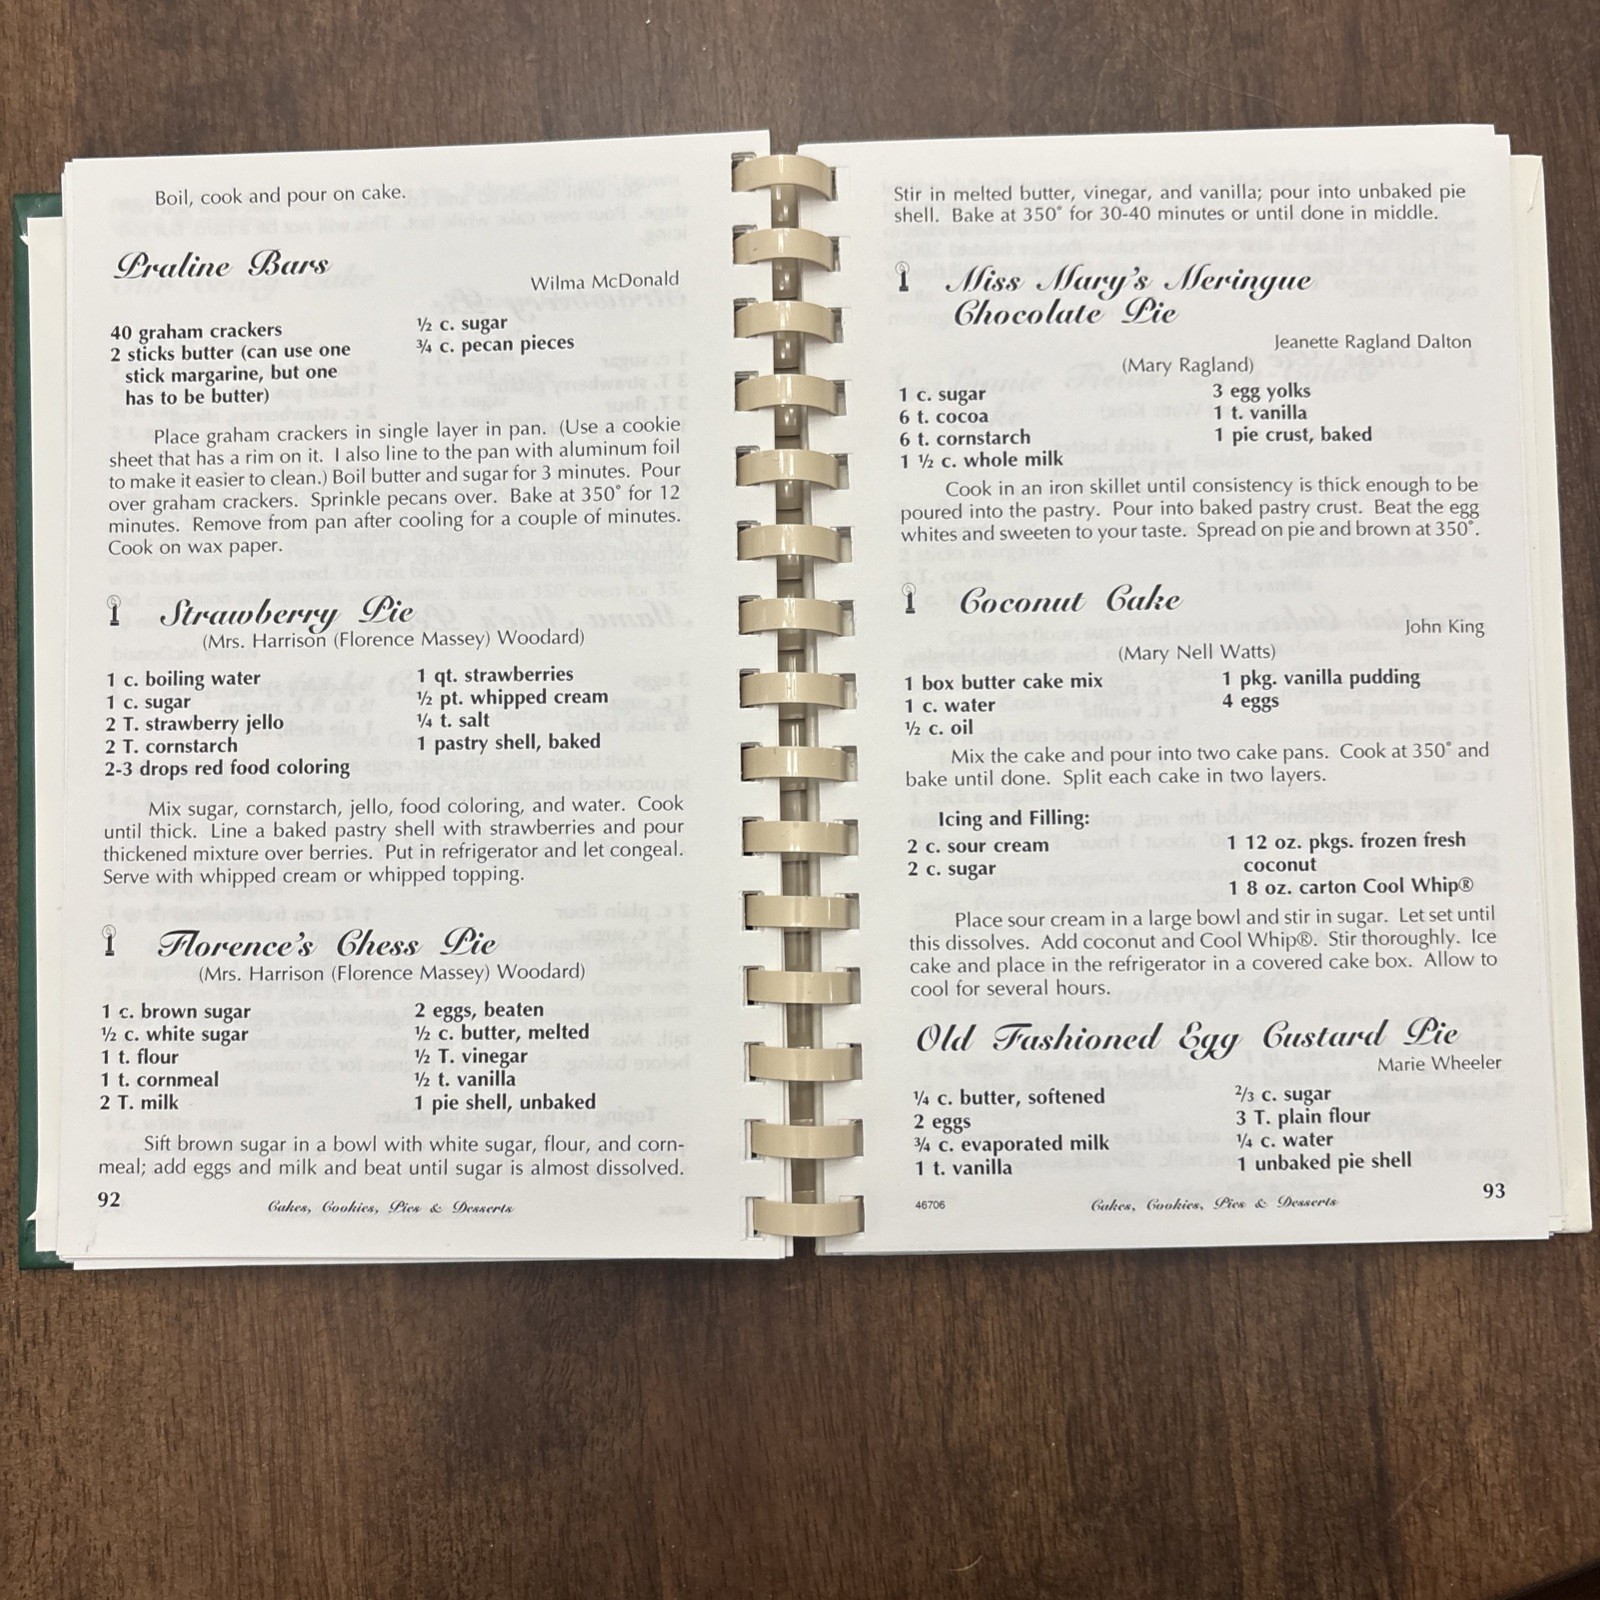 Boil, cook and pour on cake.
Praline Bars
Wilma McDonald
40 graham crackers
2 sticks butter (can use one
stick margarine, but one
has to be butter)
½ c. sugar
¾ c. pecan pieces
Place graham crackers in single layer in pan. (Use a cookie
sheet that has a rim on it. I also line to the pan with aluminum foil
to make it easier to clean.) Boil butter and sugar for 3 minutes. Pour
over graham crackers. Sprinkle pecans over. Bake at 350° for 12
minutes. Remove from pan after cooling for a couple of minutes.
Cook on wax paper.
Strawberry Pie
(Mrs. Harrison (Florence Massey) Woodard)
1 c. boiling water
1 c. sugar
2 T. strawberry jello
2 T. cornstarch
2-3 drops red food coloring
1 qt. strawberries
½ pt. whipped cream
¼ t. salt
1 pastry shell, baked
Mix sugar, cornstarch, jello, food coloring, and water. Cook
until thick. Line a baked pastry shell with strawberries and pour
thickened mixture over berries. Put in refrigerator and let congeal.
Serve with whipped cream or whipped topping.
Florence's Chess Pie
(Mrs. Harrison (Florence Massey) Woodard)
1 c. brown sugar
½ c. white sugar
1 t. flour
1 t. cornmeal
2 T. milk
2 eggs, beaten
½ c. butter, melted
½ T. vinegar
½ t. vanilla
1 pie shell, unbaked
Sift brown sugar in a bowl with white sugar, flour, and corn-
meal; add eggs and milk and beat until sugar is almost dissolved.
92
Cakes, Cookies, Pies & Desserts
Stir in melted butter, vinegar, and vanilla; pour into unbaked pie
shell. Bake at 350° for 30-40 minutes or until done in middle.
Miss Mary's Meringue
Chocolate Pie
Jeanette Ragland Dalton
(Mary Ragland)
1 c. sugar
6 t. cocoa
6 t. cornstarch
1 ½ c. whole milk
3 egg yolks
1 t. vanilla
1 pie crust, baked
Cook in an iron skillet until consistency is thick enough to be
poured into the pastry. Pour into baked pastry crust. Beat the egg
whites and sweeten to your taste. Spread on pie and brown at 350°.
Coconut Cake
John King
(Mary Nell Watts)
1 box butter cake mix
1 c. water
½ c. oil
1 pkg. vanilla pudding
4 eggs
Mix the cake and pour into two cake pans. Cook at 350° and
bake until done. Split each cake in two layers.
Icing and Filling:
2 c. sour cream
2 c. sugar
1 12 oz. pkgs. frozen fresh
coconut
1 8 oz. carton Cool Whip®
Place sour cream in a large bowl and stir in sugar. Let set until
this dissolves. Add coconut and Cool Whip®. Stir thoroughly. Ice
cake and place in the refrigerator in a covered cake box. Allow to
cool for several hours.
Old Fashioned Egg Custard Pie
Marie Wheeler
¼ c. butter, softened
2 eggs
¾ c. evaporated milk
1 t. vanilla
⅔ c. sugar
3 T. plain flour
¼ c. water
1 unbaked pie shell
46706
Cakes, Cookies, Pies & Desserts
93